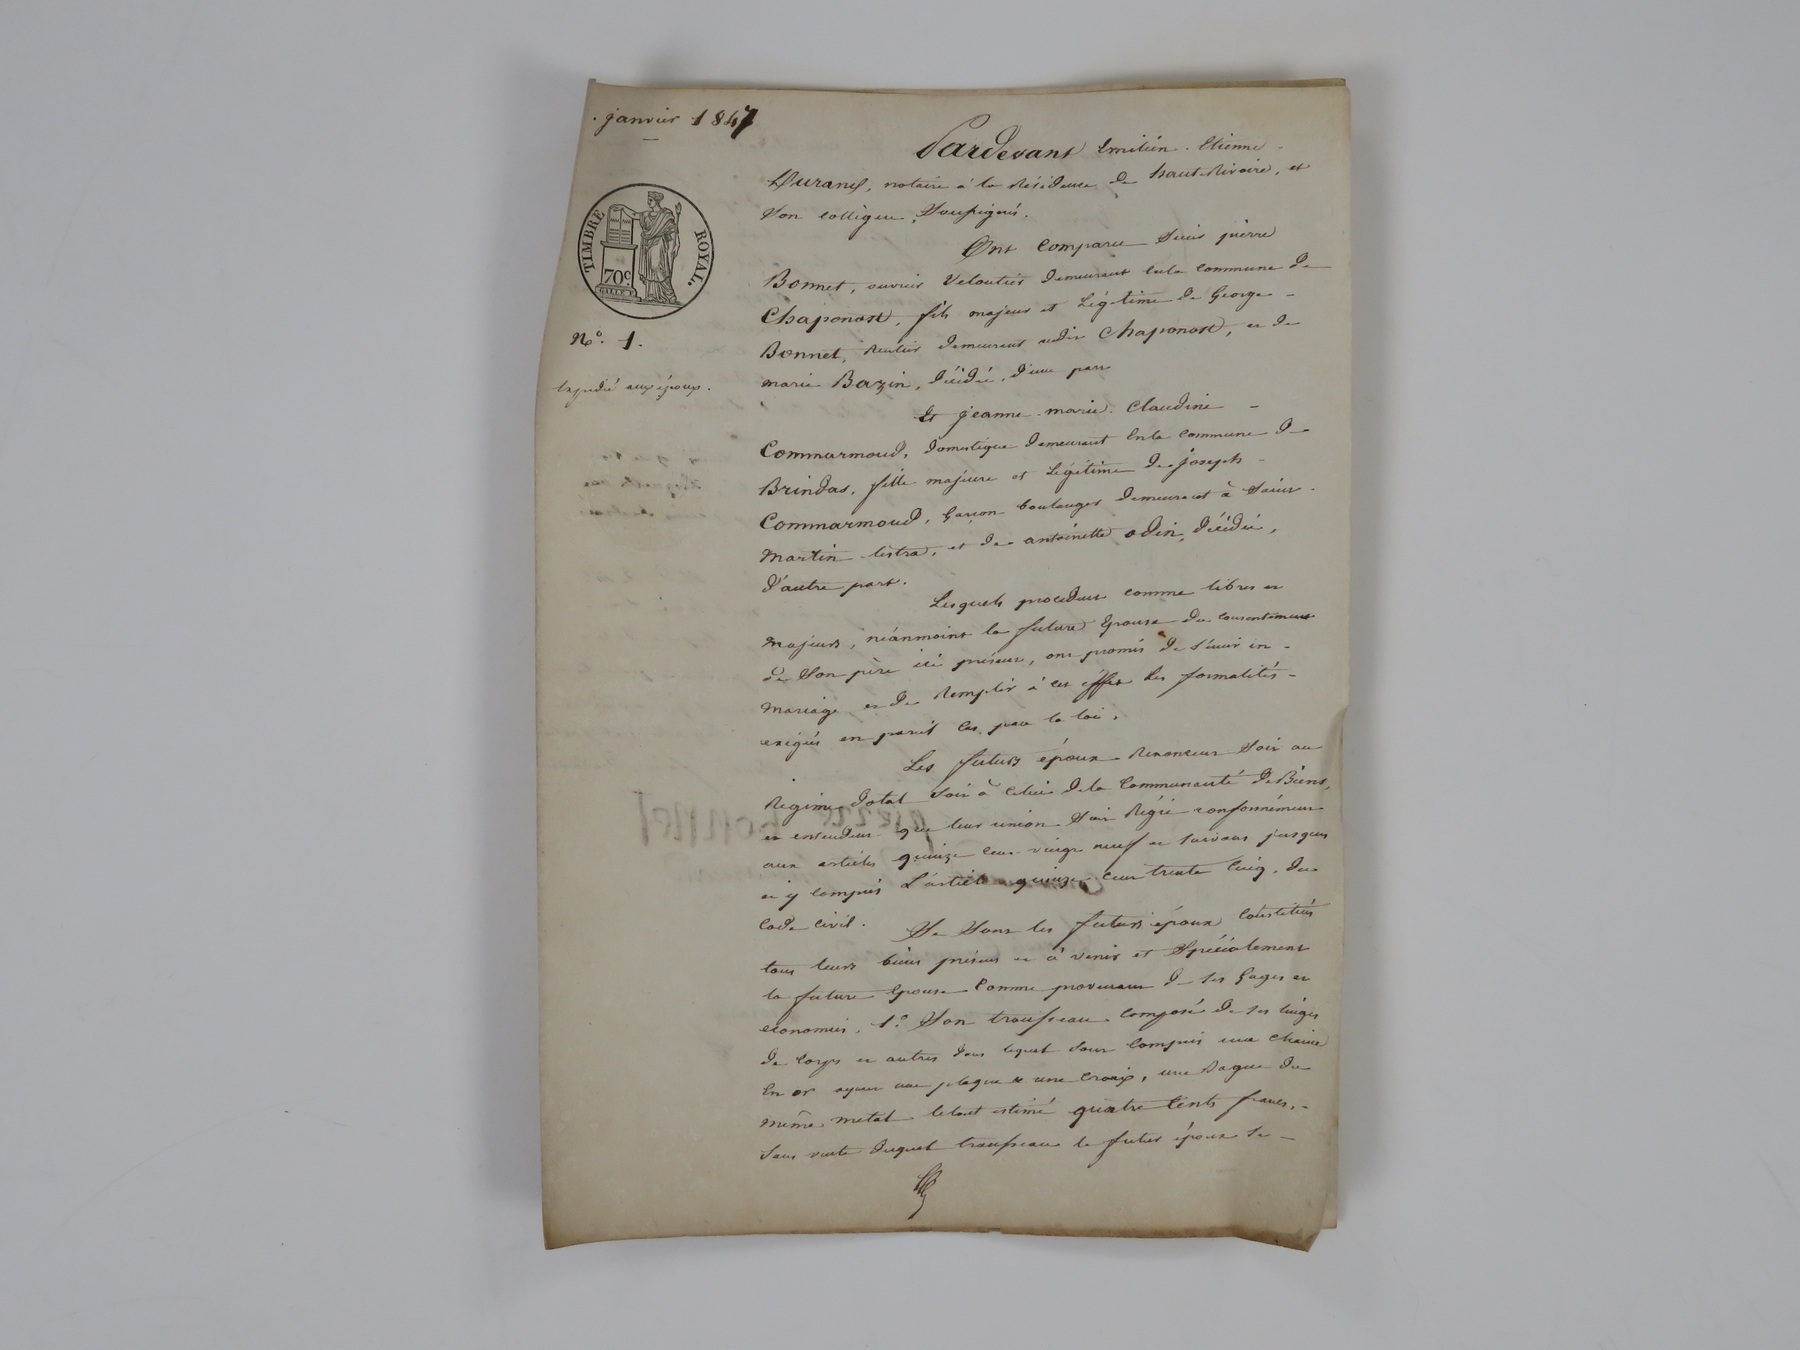 janvier 1847
TIMBRE ROYAL.
70c.
N° 1.
Expedié aux époux.
Pardevant Emilien Etienne
Durand, notaire à la Résidence de haut-Rivoire, et
Son collègue, Soussignés.
Ont Comparu Sieur pierre
Bonnet, ouvrier Veloutier demeurant En la commune de
Chaponost, fils majeur et Légitime de George
Bonnet, Rentier demeurant audit Chaponost, et de
marie Bazin, décédée, d'une part
Et jeanne marie Claudine
Commarmond, domestique demeurant En la commune de
Brindas, fille majeure et Légitime de joseph
Commarmond, Garçon boulanger demeurant à Saint
Martin lestra, et de antoinette odin, décédée,
d'autre part.
Lesquels procédant comme libres et
majeurs, néanmoins la future Epouse du consentement
de Son père ici présent, ont promis de S'unir en
mariage et de Remplir à cet effet les formalités
exigées en pareil cas par la loi.
Les futurs époux Renoncent Soit au
Régime dotal Soit à Celui de la Communauté de Biens,
et entendent que leur union Soit Régie conformément
aux articles quinze cent vingt neuf et Suivans jusques
et y compris L'article quinze cent trente Cinq, du
Code Civil. Se Sont les futurs époux Constitués
tous leurs biens présens et à venir et Spécialement
la future Epouse Comme provenant de ses Gages et
economies, 1° Son trousseau Composé de ses linges
de Corps et autres dans lequel Sont Compris une chaine
En or ayant une plaque & une Croix, une Bague du
même metal le tout estimé quatre Cents francs,
Sans vente duquel trousseau le futur époux Se